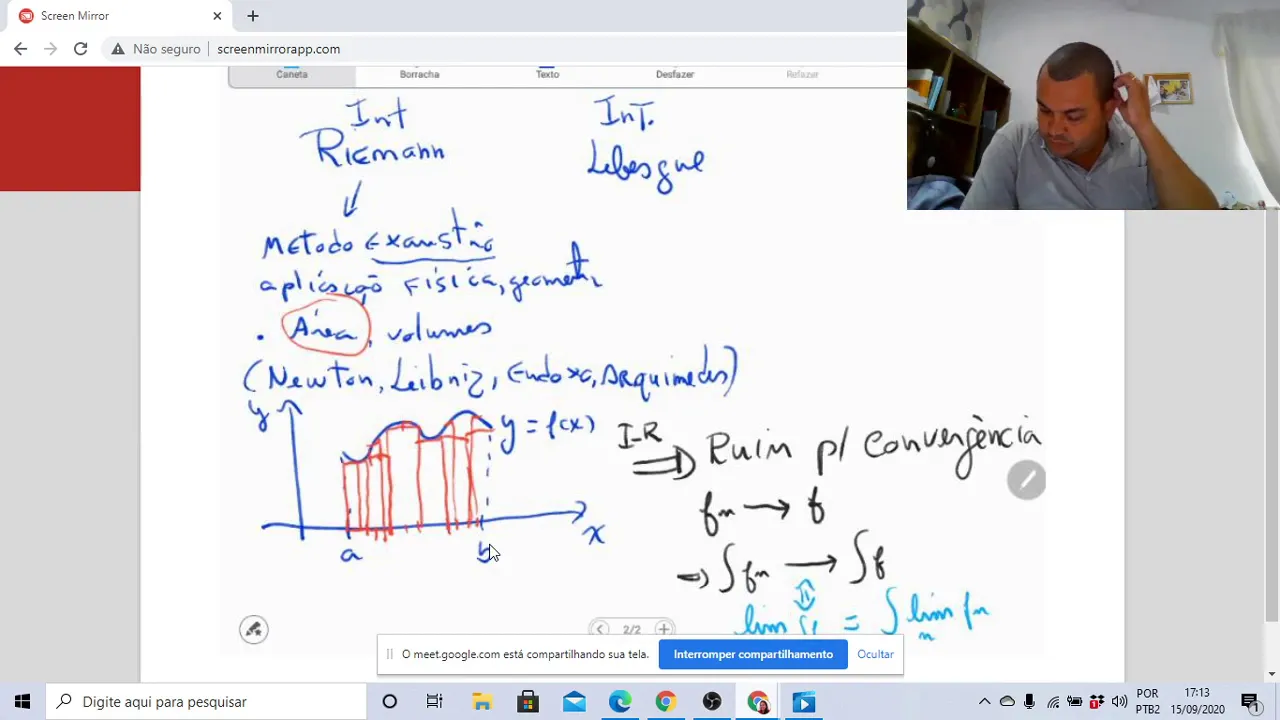 Screen Mirror
Não seguro | screenmirrorapp.com
Caneta Borracha Texto Desfazer Refazer
Int Riemann
Int. Lebesgue
Metodo Exaustão
aplicação Física, geomet.
. Área, volumes
(Newton, Leibniz, Eudoxo, Arquimedes)
y
y = f(x)
a b x
I-R ⇒ Ruim p/ Convergência
fn → f
⇒ ∫fn → ∫f
lim ∫f = ∫ lim fn
n
2/2
O meet.google.com está compartilhando sua tela. Interromper compartilhamento Ocultar
Digite aqui para pesquisar
POR 17:13
PTB2 15/09/2020